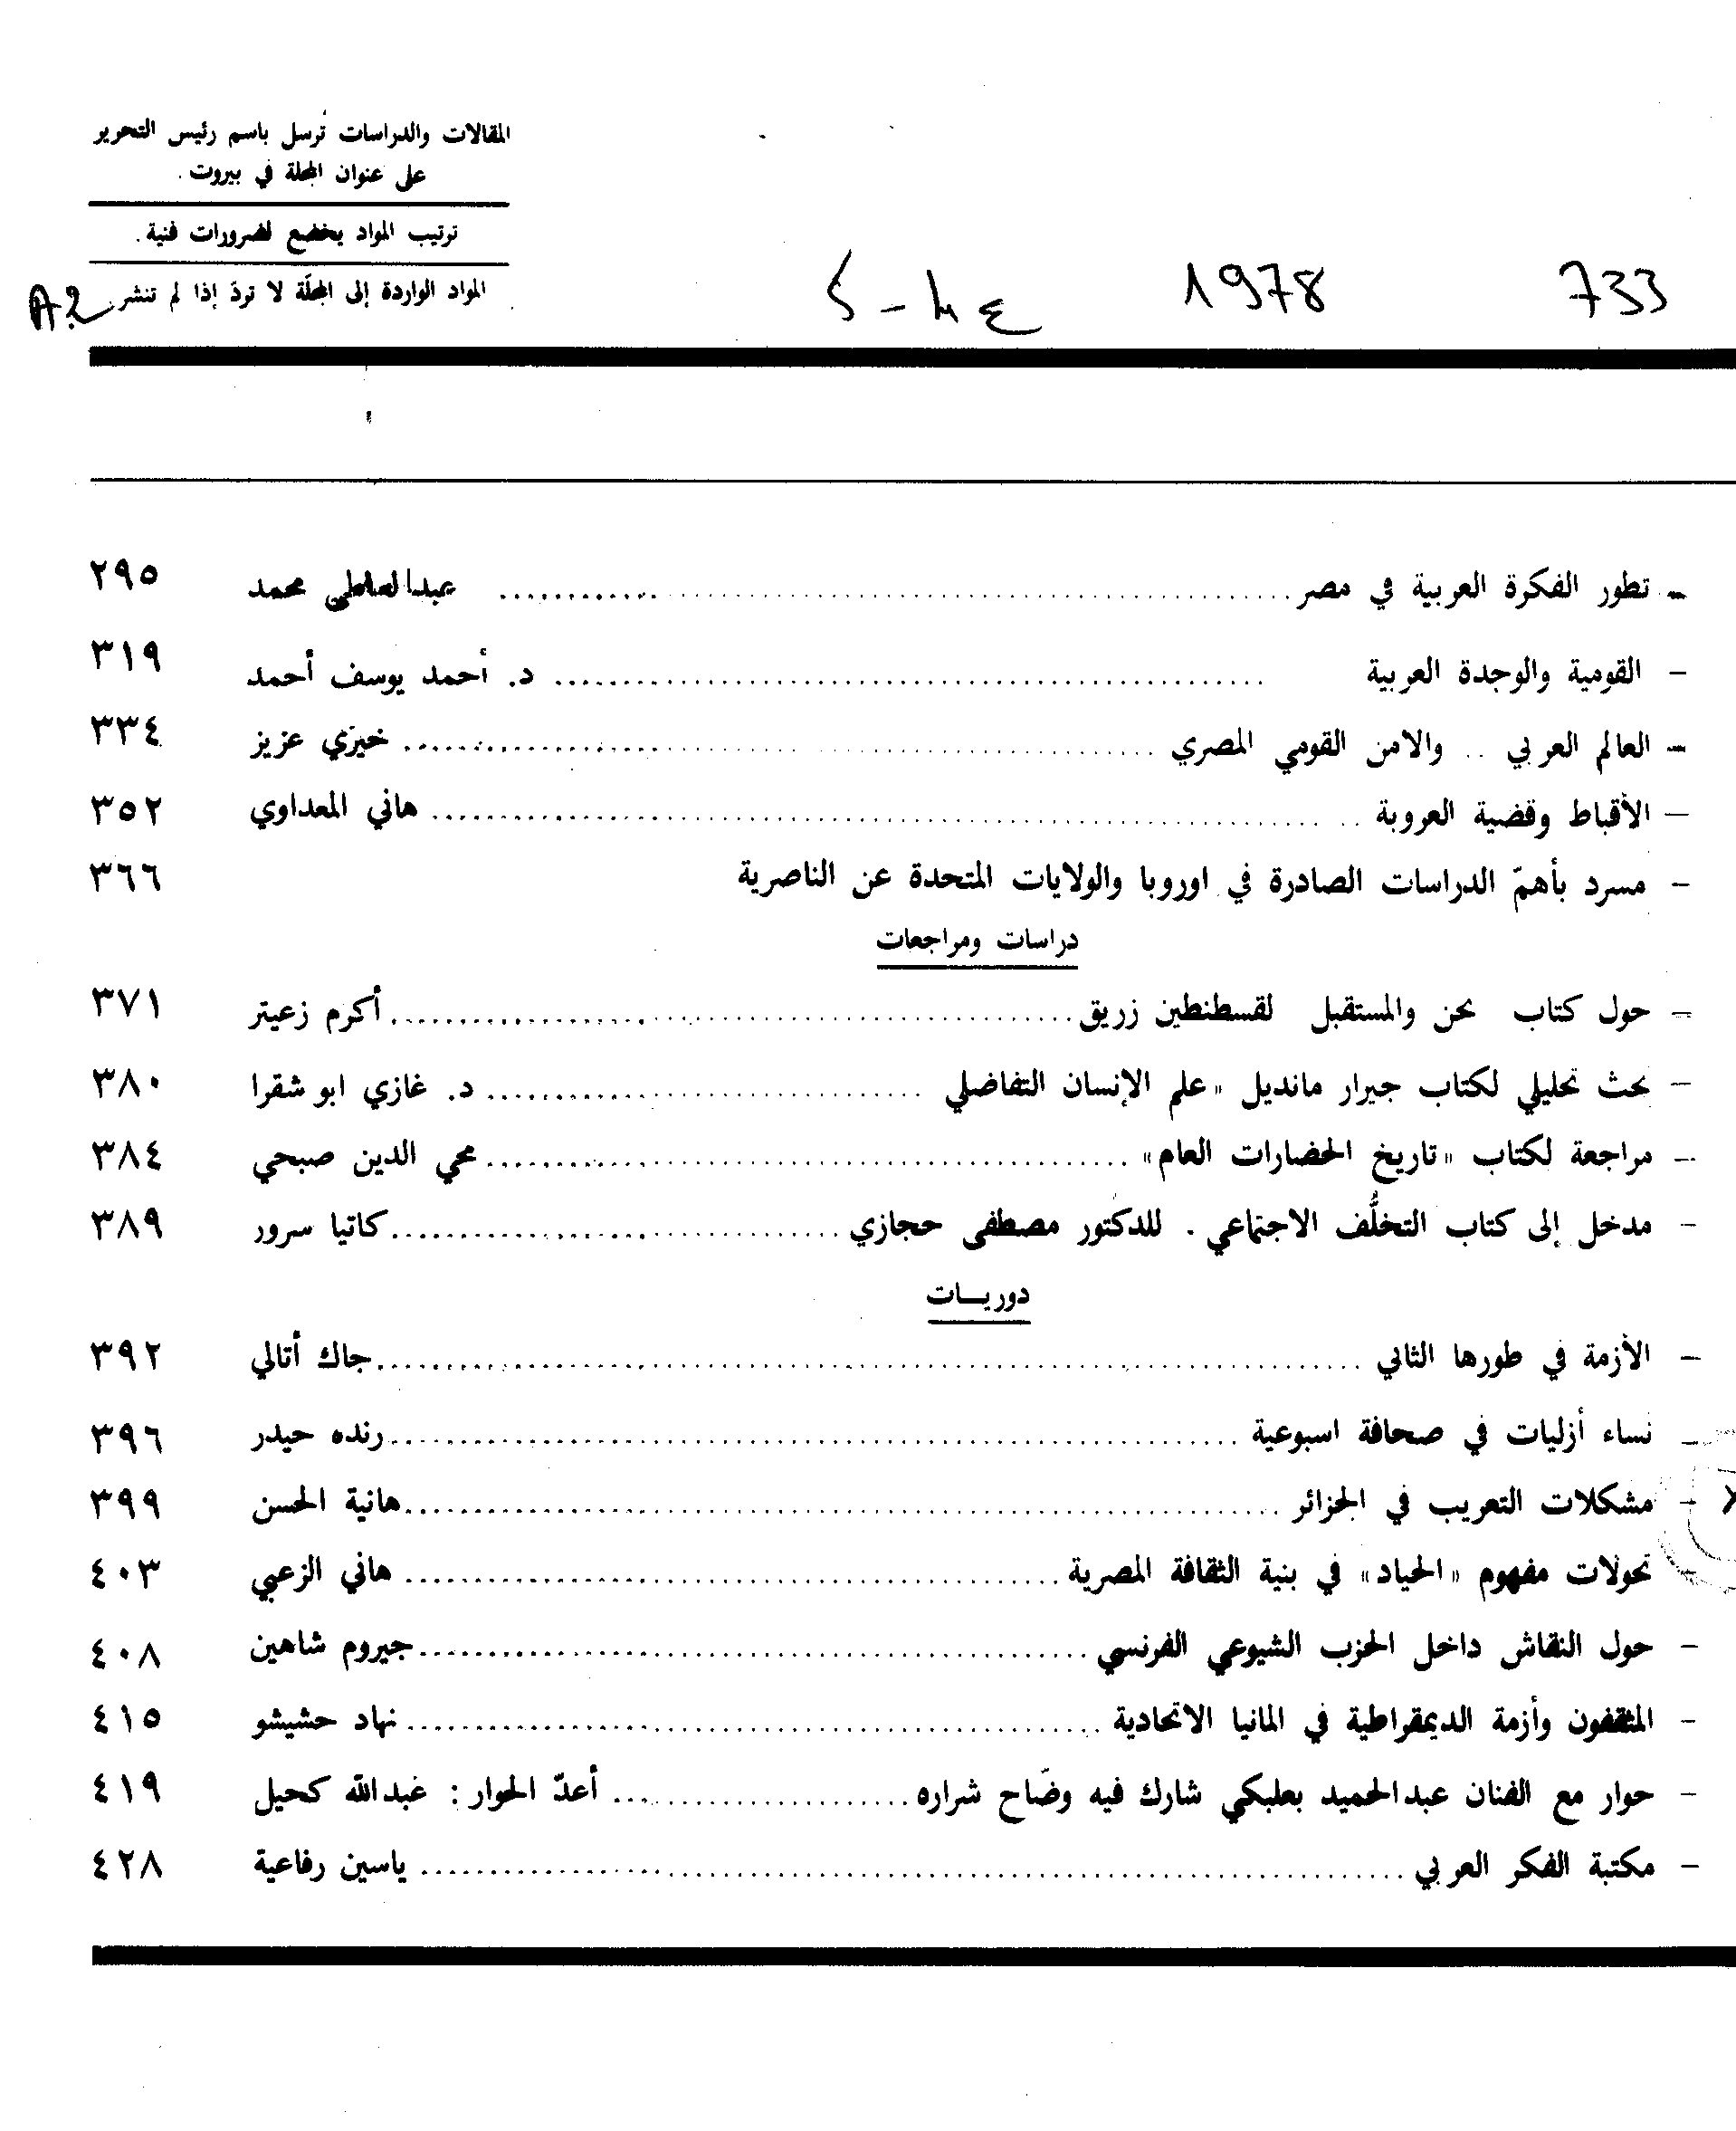 المقالات والدراسات تُرسل باسم رئيس التحرير
على عنوان المجلة في بيروت.
ترتيب المواد يخضع لضرورات فنية.
المواد الواردة إلى المجلّة لا تردّ إذا لم تنشر.
733 1978
- تطور الفكرة العربية في مصر ........ عبدالعاطي محمد ٢٩٥
- القومية والوحدة العربية ........ د. أحمد يوسف أحمد ٣١٩
- العالم العربي .. والامن القومي المصري ........ خيري عزيز ٣٣٤
- الأقباط وقضية العروبة ........ هاني المعداوي ٣٥٢
- مسرد بأهمّ الدراسات الصادرة في اوروبا والولايات المتحدة عن الناصرية ٣٦٦
دراسات ومراجعات
- حول كتاب نحن والمستقبل لقسطنطين زريق ........ أكرم زعيتر ٣٧١
- بحث تحليلي لكتاب جيرار مانديل «علم الإنسان التفاضلي ........ د. غازي ابو شقرا ٣٨٠
- مراجعة لكتاب «تاريخ الحضارات العام» ........ محي الدين صبحي ٣٨٤
- مدخل إلى كتاب التخلُّف الاجتماعي. للدكتور مصطفى حجازي ........ كاتيا سرور ٣٨٩
دوريــات
- الأزمة في طورها الثاني ........ جاك أتالي ٣٩٢
- نساء أزليات في صحافة اسبوعية ........ رنده حيدر ٣٩٦
- مشكلات التعريب في الجزائر ........ هانية الحسن ٣٩٩
- تحولات مفهوم «الحياد» في بنية الثقافة المصرية ........ هاني الزعبي ٤٠٣
- حول النقاش داخل الحزب الشيوعي الفرنسي ........ جيروم شاهين ٤٠٨
- المثقفون وأزمة الديمقراطية في المانيا الاتحادية ........ نهاد حشيشو ٤١٥
- حوار مع الفنان عبدالحميد بعلبكي شارك فيه وضّاح شراره ........ أعدّ الحوار: عبدالله كحيل ٤١٩
- مكتبة الفكر العربي ........ ياسين رفاعية ٤٢٨